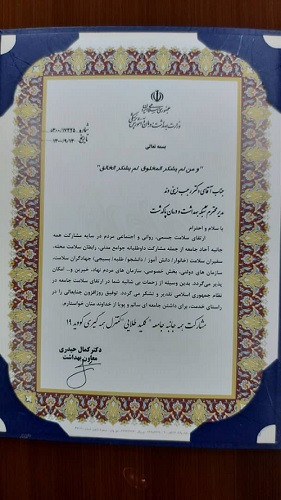 جمهوری اسلامی ایران
وزارت بهداشت، درمان و آموزش پزشکی
شماره
تاریخ ۱۴۰۰/۰۹/
بسمه تعالی
"و من لم یشکر المخلوق لم یشکر الخالق"
جناب آقای دکتر رجب زینی وند
مدیر محترم شبکه بهداشت و درمان
با سلام و احترام
ارتقای سلامت جسمی، روانی و اجتماعی مردم در سایه مشارکت همه
جانبه آحاد جامعه از جمله مشارکت داوطلبانه جوامع مدنی، رابطان سلامت محله،
سفیران سلامت (خانوار/ دانش آموز / دانشجو/ طلبه/ بسیجی) جهادگران سلامت،
سازمان های دولتی، بخش خصوصی، سازمان های مردم نهاد، خیرین و... امکان
پذیر می گردد. بدین وسیله از زحمات بی شائبه شما در ارتقای سلامت جامعه در
نظام جمهوری اسلامی تقدیر و تشکر می گردد. توفیق روزافزون جنابعالی را در
راستای خدمت، برای داشتن جامعه ای سالم و پویا از خداوند منان خواستارم.
مشارکت همه جانبه جامعه "کلید طلایی" کنترل همه گیری کووید ۱۹
دکتر کمال حیدری
معاون بهداشت